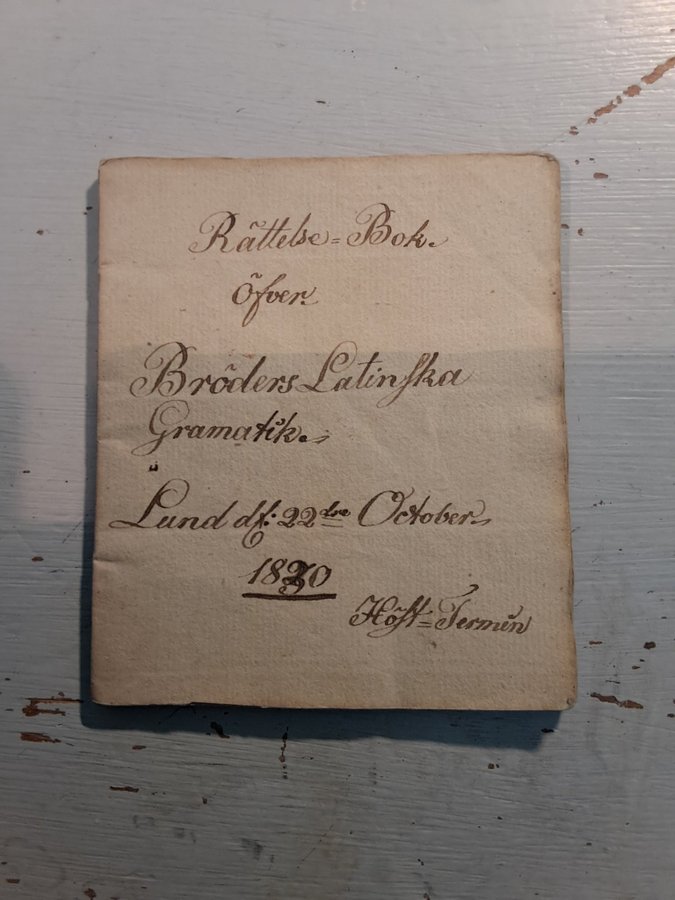 Rättelse=Bok.
Öfver.
Bröders Latinska
Gramatik.
Lund d. 22dre October.
1830
Höst=Termin